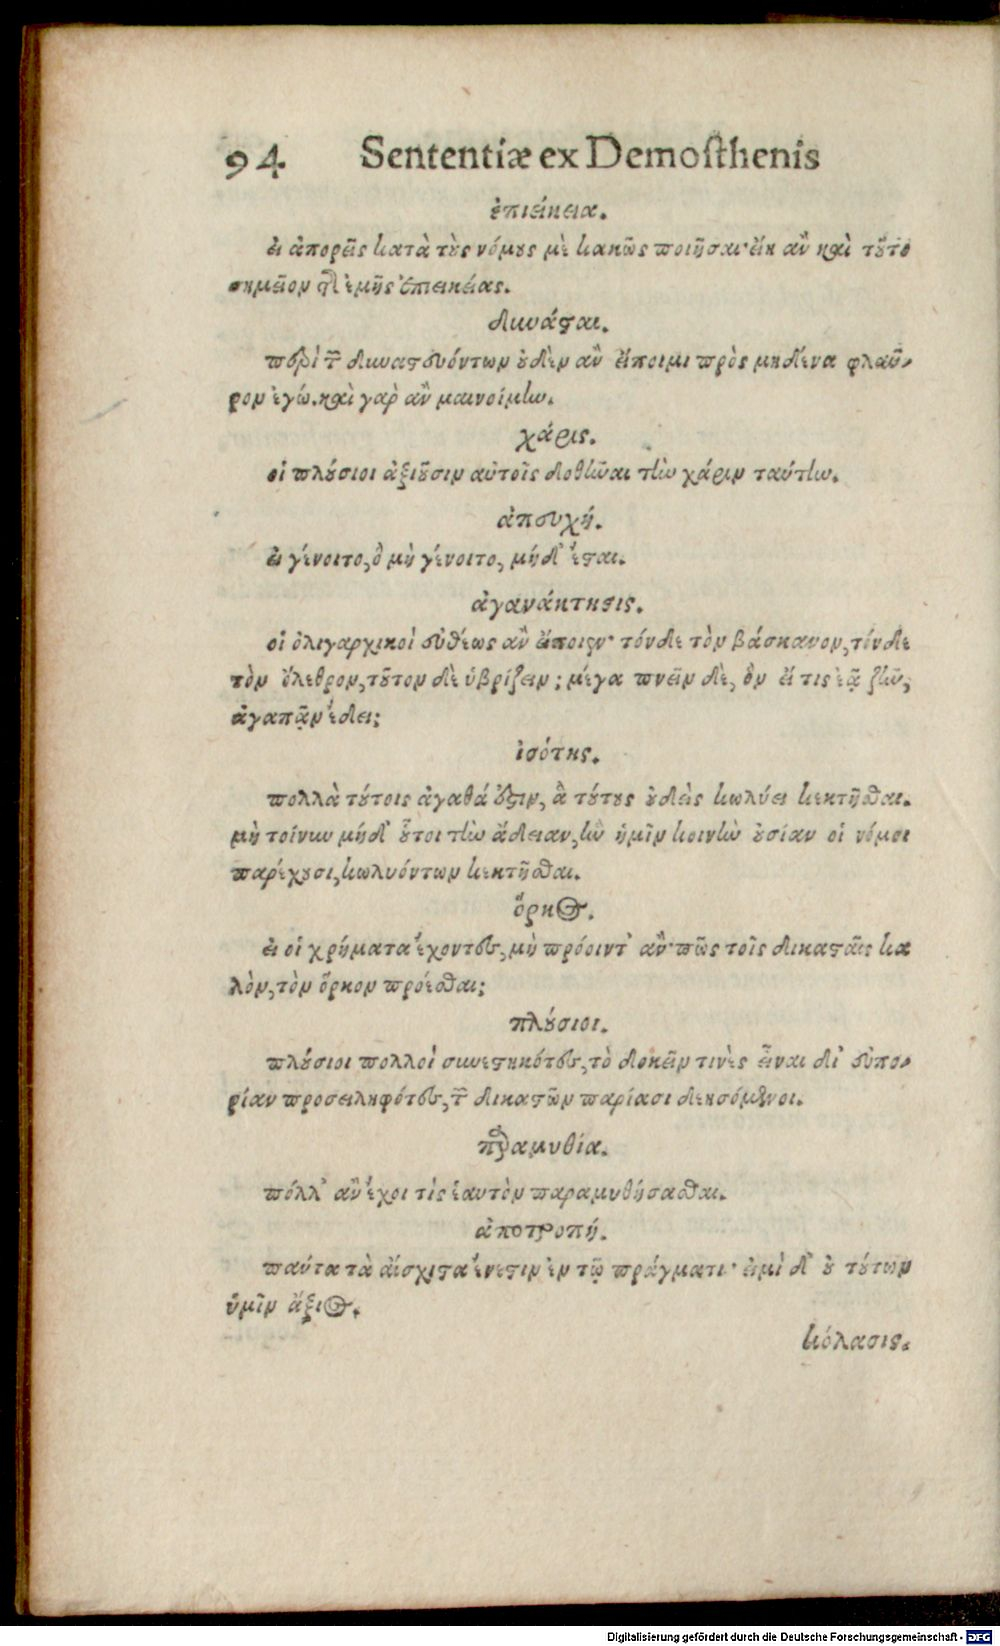 94 Sententiæ ex Demosthenis
ἐπιείκεια.
εἰ ἀπορεῖς κατὰ τοὺς νόμους μὲ κακῶς ποιῆσαι· εἴη ἂν καὶ τοῦτο
σημεῖον τῆς ἐμῆς ἐπιεικείας.
δικασταί.
περὶ τῶν δικαστευόντων οὐδὲν ἂν εἴποιμι πρὸς μηδένα φλαῦ-
ρον ἐγώ. καὶ γὰρ ἂν μαινοίμην.
χάρις.
οἱ πλούσιοι ἀξιοῦσιν αὐτοῖς δοθῆναι τὴν χάριν ταύτην.
ἀπευχή.
εἰ γένοιτο, ὃ μὴ γένοιτο, μήδ' ἔσται.
ἀγανάκτησις.
οἱ ὀλιγαρχικοὶ εὐθέως ἂν εἴποιεν· τόνδε τὸν βάσκανον, τόνδε
τὸν ὄλεθρον, τοῦτον δὲ ὑβρίζειν; μέγα πνεῖν δὲ, ὃν εἴ τις ἐᾷ ζῆν,
ἀγαπᾷν ἔδει;
ἰσότης.
πολλὰ τούτοις ἀγαθά ἐστιν, ἃ τούτους οὐδεὶς κωλύει κεκτῆσθαι.
μὴ τοίνυν μήδ' οὗτοι τὴν ἄδειαν, ἣν ἡμῖν κοινὴν οὐσίαν οἱ νόμοι
παρέχουσι, κωλυόντων κεκτῆσθαι.
ὅρκος.
εἰ οἱ χρήματα ἔχοντες, μὴ πρόοιντ' ἄν· πῶς τοῖς δικασταῖς κα
λὸν, τὸν ὅρκον προέσθαι;
πλούσιοι.
πλούσιοι πολλοὶ συνεστηκότες, τὸ δοκεῖν τινὲς εἶναι δι' εὐπο-
ρίαν προσειληφότες, τῶν δικαστῶν παρίασι δεησόμενοι.
παραμυθία.
πόλλ' ἂν ἔχοι τὶς ἑαυτὸν παραμυθήσασθαι.
ἀποτροπή.
πάντα τὰ αἴσχιστα ἔνεστιν ἐν τῷ πράγματι· εἰμὶ δ' οὐ τούτων
ὑμῖν ἄξιος.
κόλασις.
Digitalisierung gefördert durch die Deutsche Forschungsgemeinschaft - DFG